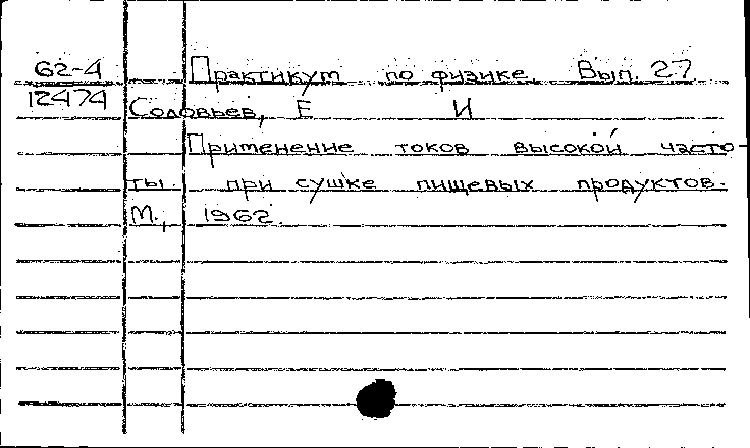 62-4 Практикум по физике. Вып. 27.
12474 Соловьев, Е И
Применение токов высокой часто-
ты при сушке пищевых продуктов.
М., 1962.